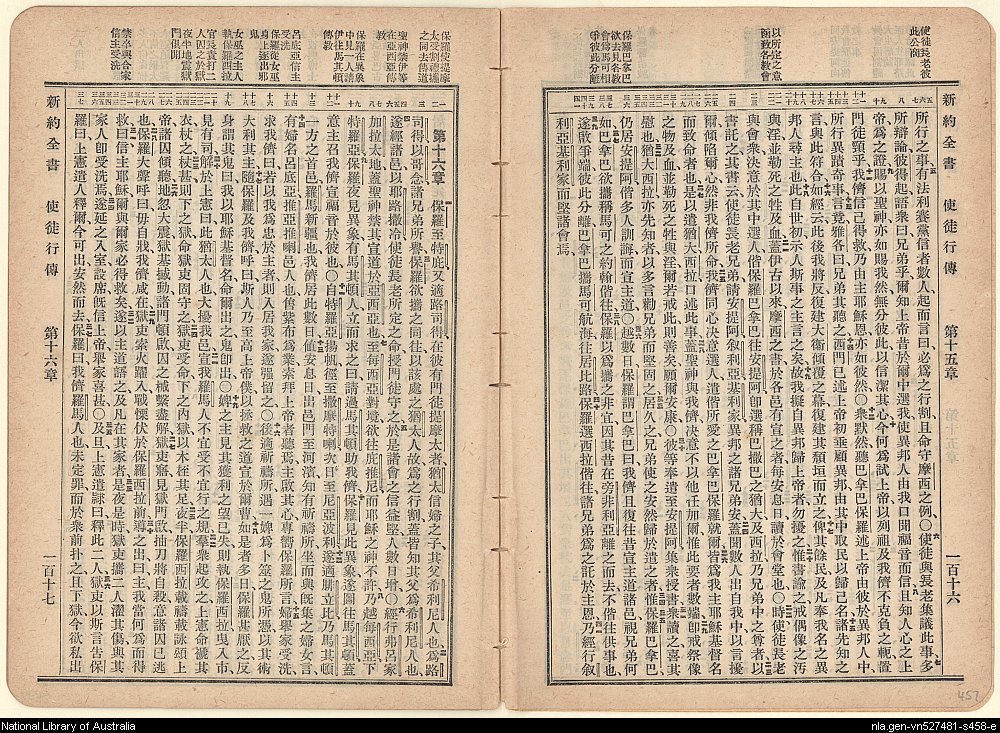 新約全書 使徒行傳 第十五章 一百十六
使徒長老彼此公商
以所定之意函致各教會
保羅拿巴欲去見各教會為馬可相爭彼此分離
所行之事有法利賽黨信者數人起而言曰必為之行割且命守摩西之例○使徒與長老集議此事多
所辯論彼得起語衆曰兄弟乎爾知上帝昔於爾中選我使異邦人由我口聞福音而信且知人心之上
帝為之證賜以聖神亦如賜我然無分彼此以信潔其心今何為試上帝以列祖及我儕不克負之軛置
門徒頸乎我儕信己得救乃由主耶穌恩亦如彼然○衆默然聽巴拿巴保羅述上帝由彼於異邦人中
所行異蹟奇事言竟雅各曰兄弟其聽之西門已述上帝初垂顧異邦由其中取民以歸己名諸先知之
言與此符合如經云此後我將反復建大衛傾覆之幕復建其頹垣而立之俾其餘民及凡奉我名之異
邦人尋主也此自世初示人斯事之主言之矣故我擬自異邦歸上帝者勿擾之惟書諭之戒偶像之汚
與淫並勒死之牲及血蓋伊古以來摩西之書於各邑有宣之者每安息日讀於會堂也○時使徒長老
與會衆決意於其中選人偕保羅巴拿巴往安提阿即選稱巴撒巴之猶大及西拉乃兄弟中之尊者以
書託之其書云使徒長老兄弟請安提阿叙利亞基利家異邦之諸兄弟安蓋聞數人出自我中以言擾
爾傾陷爾心然非我儕所命我儕同心決意選人遣偕所愛之巴拿巴保羅就爾皆為我主耶穌基督名
而致命者也是以遣猶大西拉可口述此事蓋聖神與我儕決意不以他任加爾惟此要者數端即戒祭像
之物及血並勒死之牲與淫爾若戒此則善矣願爾安康○彼等奉遣至安提阿集衆授書衆讀之喜其
慰也猶大西拉亦先知者以多言勸兄弟而堅固之居久之兄弟使之安然歸於遣之者惟保羅巴拿巴
仍居安提阿偕多人訓誨而宣主道○越數日保羅謂巴拿巴曰我儕且復往昔宣主道諸邑視兄弟何
如巴拿巴欲攜稱馬可之約翰偕往保羅以為攜之非宜因其昔在旁非利亞離之而去不偕往供事也
遂啟爭端彼此分離巴拿巴攜馬可航海往居比路保羅選西拉偕往諸兄弟為之託於主恩乃經行叙
利亞基利家而堅諸會焉
457
新約全書 使徒行傳 第十六章 一百十七
保羅使提摩太受割禮攜之同去傳道
聖神禁伊等在亞西亞傳教
保羅在異象中見一人請伊往馬其頓傳教
呂底亞信主受洗
保羅從女巫身上逐出邪鬼
女巫之主人執保羅西拉
官長責打二人囚之於獄
夜半地震獄門俱開
禁卒與合家信主受洗
第十六章 保羅至特庇又適路司得在彼有門徒提摩太者猶太信婦之子其父希利尼人也為路
司得以哥念諸兄弟所譽保羅欲攜之同往以該處之猶太人故為之行割蓋皆知其父為希利尼人也
遂經諸邑以耶路撒冷使徒長老所定之命授門徒守之於是諸會之信益堅人數日增○經行弗呂家
加拉太地蓋聖神禁其宣道於亞西亞也至每西亞對境欲往庇推尼而耶穌之神不許乃越每西亞下
特羅亞保羅夜見異象有馬其頓人立而求之曰請過馬其頓助我儕保羅見此異象遂圖往馬其頓蓋
意主召我儕宣福音於彼也○自特羅亞揚帆徑至撒摩特喇次日至尼亞波利遂適腓立比乃馬其頓
一方之首邑羅馬新疆也我儕居此數日値安息日出邑門至河濱知有祈禱所坐而與旣集之婦女言
有婦名呂底亞推亞推喇邑人也售紫布為業素拜上帝者聽焉主啟其心專嚮保羅所言婦舉家受洗
求我儕曰若以我為忠於主者則入居我家遂强留之○後適祈禱所遇一婢為卜筮之鬼所憑以其術
大利其主隨保羅與我儕呼曰斯人乃至高上帝僕以拯救之道宣於爾曹如是者多日保羅甚厭之反
身謂其鬼曰我以耶穌基督名命爾出之鬼即出○婢之主見其獲利之望已失則執保羅西拉曳入巿
見有司解於上憲曰此猶太人也大擾我邑宣我羅馬人不宜受不宜行之規羣衆起攻之上憲命褫其
衣杖之杖甚則下之獄命獄吏固守之獄吏受命下之內獄以木桎其足夜半保羅西拉載禱載詠頌上
帝諸囚傾聽地忽大震獄基搣動諸門頓啟囚之械繫盡解獄吏寤見獄門啟抽刀將自殺意諸囚已逃
也保羅大聲呼曰毋自戕我儕咸在獄吏索火躍入戰慄伏於保羅西拉前導之出曰主我當何為而得
救曰信主耶穌爾與爾家必得救矣遂以主道語之及凡在其家者是夜是時獄吏攜二人濯其傷與其
家人即受洗焉遂延之入室設席旣信上帝舉家喜甚○及旦上憲遣隸曰釋此二人獄吏以斯言告保
羅曰上憲遣人釋爾今可出安然而去保羅曰我儕羅馬人也未定罪而於衆前扑之且下獄今欲私出
National Library of Australia
nla.gen-vn527481-s458-e